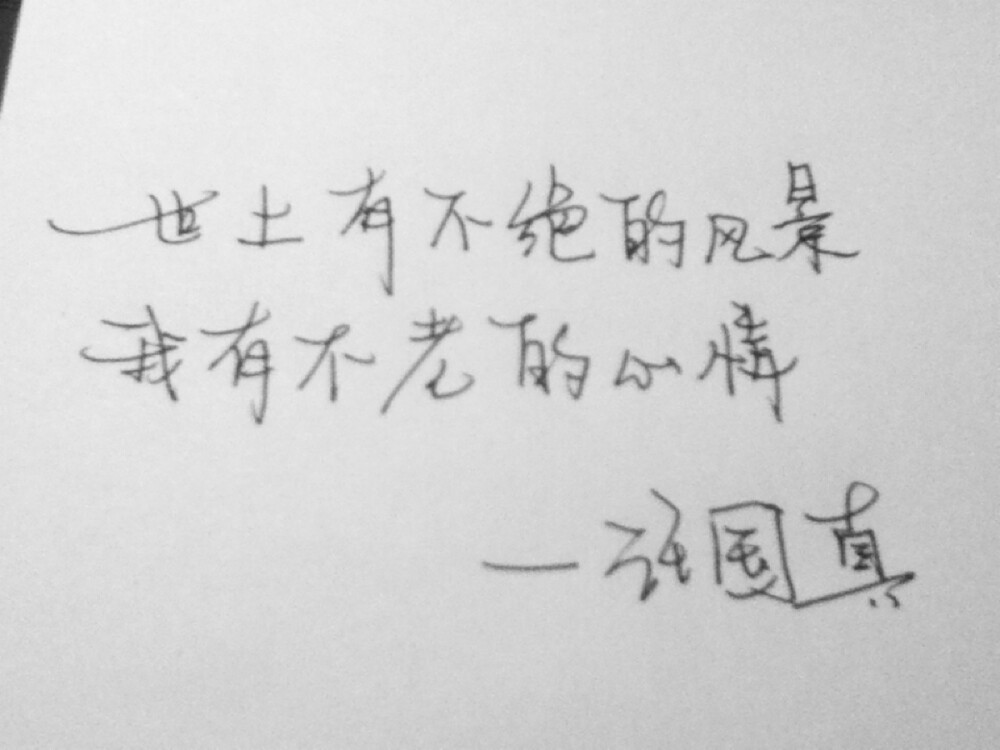 世上有不绝的风景
我有不老的心情
—汪国真